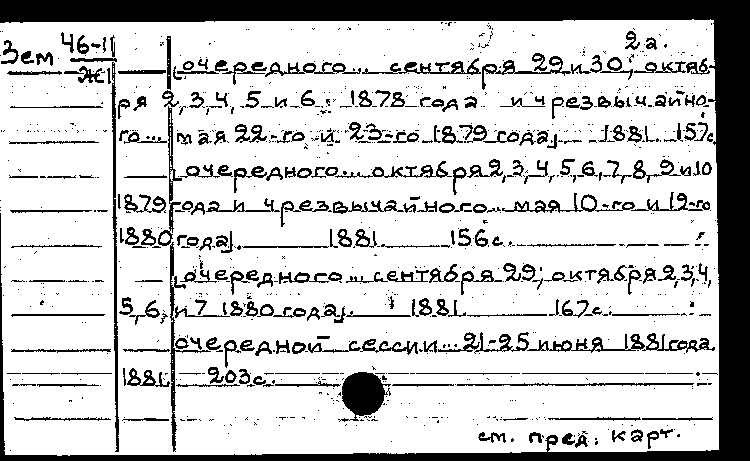 2а.
Зем 46-11
Ж1
[очередного... сентября 29 и 30; октяб-
ря 2,3,4, 5 и 6 1878 года и чрезвычайно-
го... мая 22-го и 23-го 1879 года]. 1881. 157с
[очередного... октября 2,3,4,5,6,7,8,9 и 10
1879 года и чрезвычайного... мая 10-го и 12-го
1880 года]. 1881. 156с.
[очередного... сентября 29; октября 2,3,4,
5,6, и 7 1880 года]. 1881. 167с.
очередной сессии... 21-25 июня 1881 года.
1881. 203с.
см. пред. карт.